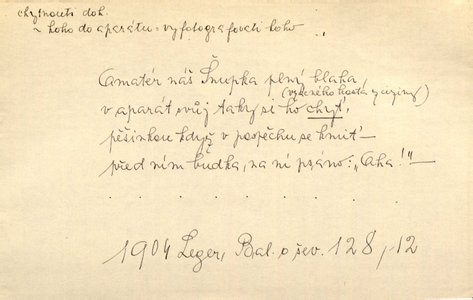 chytnouti dok.
~ koho do aparátu = vyfotografovati koho
Amatér náš Šnupka plný blaha,
(vzácného hosta z ciziny)
v aparát svůj taky si ho chyt',
pěšinkou když v pospěchu se kmit' –
před ním budka, na ní psáno: „Aha!" –
. . . . . . . .
1904 Leger, Bal. o šev. 128, 12